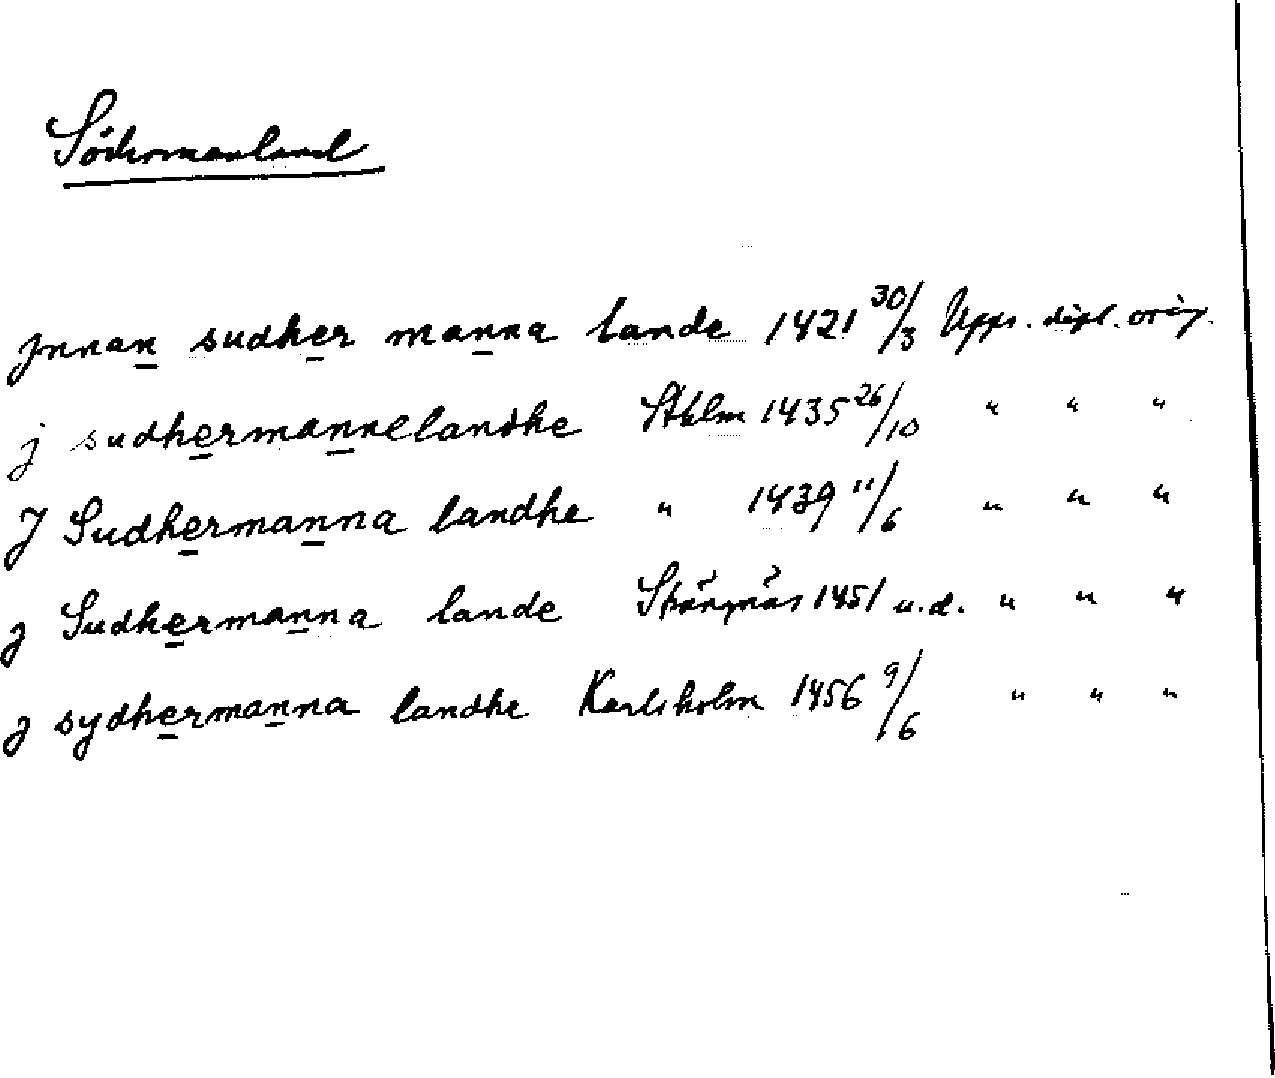 Södermanland
jnnan sudher manna lande 1421 30/3 Upps. dipl. orig.
j sudhermannelandhe Sthlm 1435 26/10 " " "
J Sudhermanna landhe " 1439 11/6 " " "
J Sudhermanna lande 1451 u.d. " " "
J sydhermanna landhe Karlsholm 1456 9/6 " " "